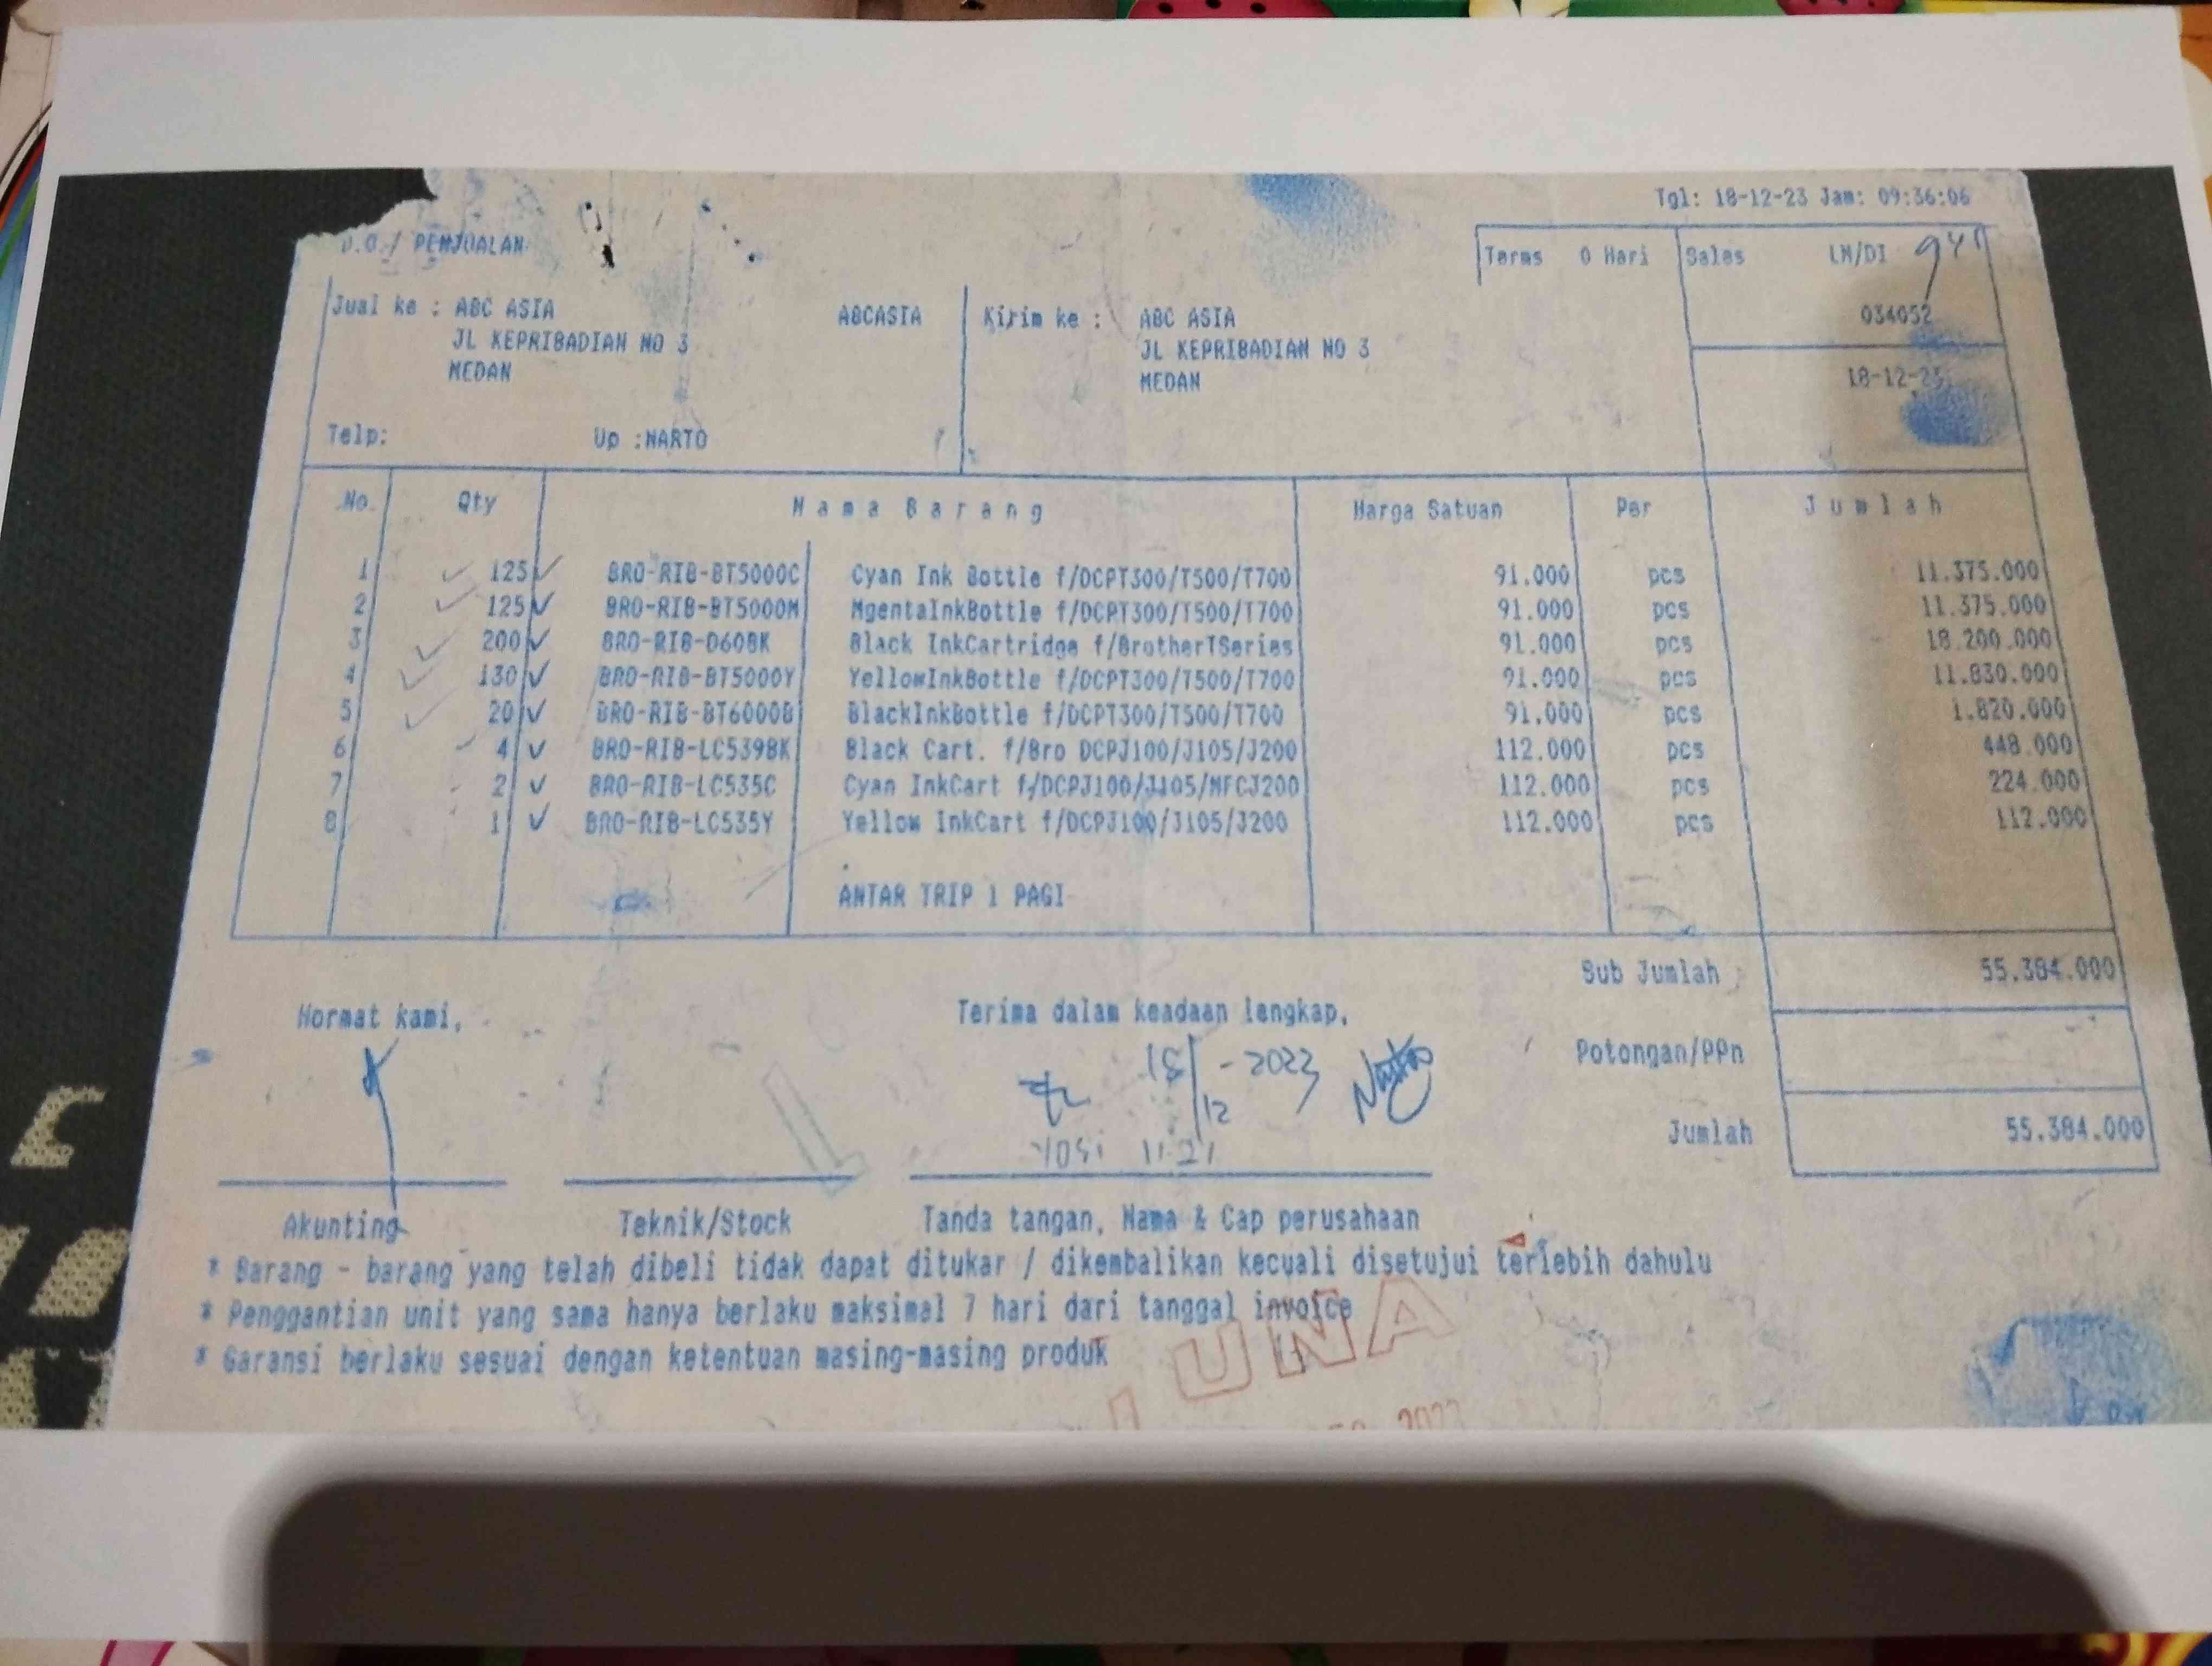 Tgl: 18-12-23 Jam: 09:36:06
/ PENJUALAN
Terms 0 Hari Sales LN/DI
034052
18-12-23
Jual ke : ABC ASIA ABCASIA
JL KEPRIBADIAN NO 3
MEDAN
Telp: Up :NARTO
Kirim ke : ABC ASIA
JL KEPRIBADIAN NO 3
MEDAN
No. Qty Nama Barang Harga Satuan Per Jumlah
1 125 BRO-RIB-BT5000C Cyan Ink Bottle f/DCPT300/T500/T700 91.000 pcs 11.375.000
2 125 BRO-RIB-BT5000M MgentaInkBottle f/DCPT300/T500/T700 91.000 pcs 11.375.000
3 200 BRO-RIB-D60BK Black InkCartridge f/BrotherTSeries 91.000 pcs 18.200.000
4 130 BRO-RIB-BT5000Y YellowInkBottle f/DCPT300/T500/T700 91.000 pcs 11.830.000
5 20 BRO-RIB-BT6000B BlackInkBottle f/DCPT300/T500/T700 91.000 pcs 1.820.000
6 4 BRO-RIB-LC539BK Black Cart. f/Bro DCPJ100/J105/J200 112.000 pcs 448.000
7 2 BRO-RIB-LC535C Cyan InkCart f/DCPJ100/J105/MFCJ200 112.000 pcs 224.000
8 1 BRO-RIB-LC535Y Yellow InkCart f/DCPJ100/J105/J200 112.000 pcs 112.000
ANTAR TRIP 1 PAGI
Sub Jumlah 55.384.000
Potongan/PPn
Jumlah 55.384.000
Hormat kami,
Terima dalam keadaan lengkap,
18/12 - 2023
Yosi 11.21
Akunting
Teknik/Stock
Tanda tangan, Nama & Cap perusahaan
* Barang - barang yang telah dibeli tidak dapat ditukar / dikembalikan kecuali disetujui terlebih dahulu
* Penggantian unit yang sama hanya berlaku maksimal 7 hari dari tanggal invoice
* Garansi berlaku sesuai dengan ketentuan masing-masing produk
LUNA
2023